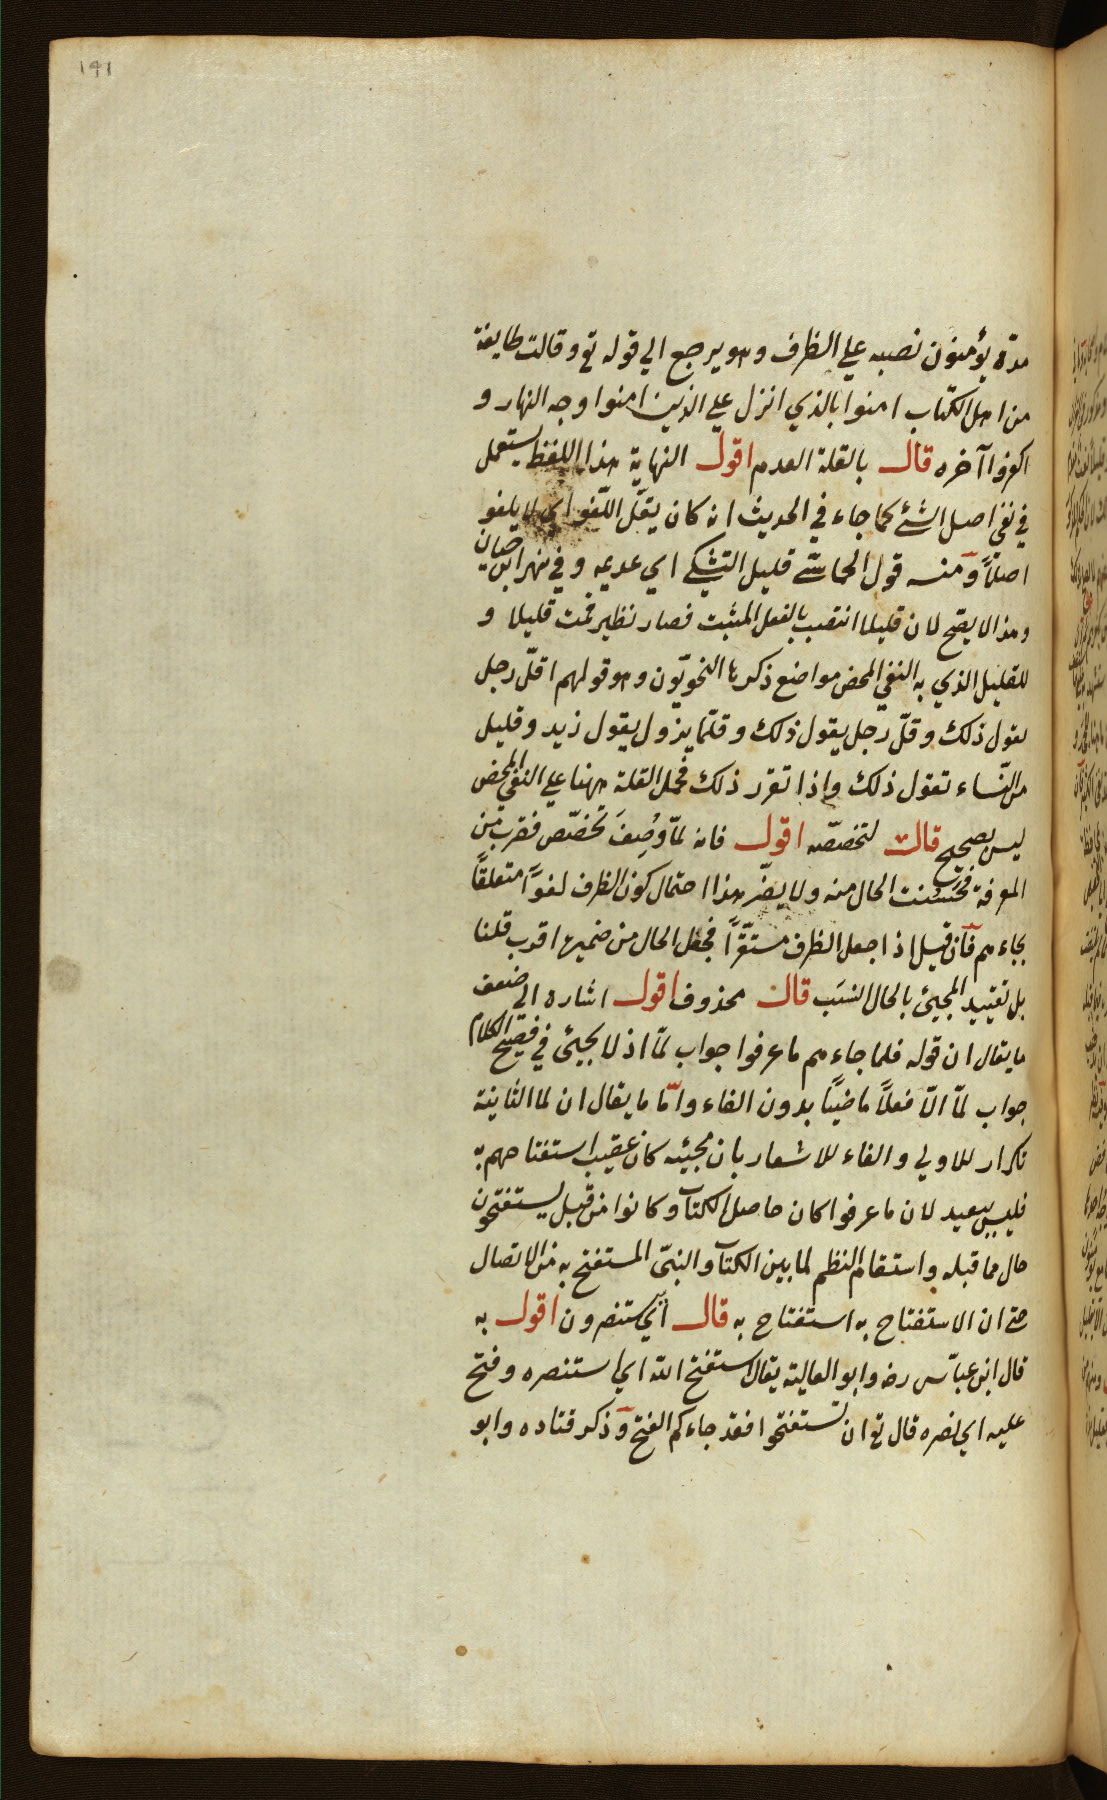 ١٩١
مدّة يؤمنون نصبه علي الظرف وهو يرجع الي قوله تع وقالت طايفة
من اهل الكتاب امنوا بالذي انزل علي الذين امنوا وجه النهار و
اكفروا آخره قال بالقلة العدم اقول النهاية هذا اللفظ يستعمل
في نفي اصل الشئ كما جاء في الحديث انه كان يقلّ اللّغو اي لا يلغو
اصلاً ومنه قول الحماسيّ قليل التشكي اي عديمه وفي نهر ابن حيان
وهذا لا يصح لان قليلا انتصب بالفعل المثبت فصار نظير قمت قليلا و
للقليل الذي به النفي المحض مواضع ذكرها النحويّون وهو قولهم اقلّ رجل
يقول ذلك وقلّ رجل يقول ذلك وقلّما يزول يقول زيد وقليل
من النّساء تقول ذلك واذا تقرر ذلك فحمل القلة ههنا علي النفي المحض
ليس بصحيح قال لتخصصه اقول فانه لمّا وُصِفَ تخصّص فقرب من
المعرفة فحَسُنت الحال منه ولا يضرّ هذا احتمال كون الظرف لغوًا متعلقًا
بجاءهم فان قيل اذا جعل الظرف مستقرًّا فجعل الحال من ضميرها اقرب قلنا
بل تقييد المجيئ بالحال انسَب قال محذوف اقول اشارة الي ضعف
ما يقال ان قوله فلما جاءهم ما عرفوا جواب لمّا اذ لا يجيئ في فصيح الكلام
جواب لمّا الاّ فعلاً ماضيًا بدون الفاء وامّا ما يقال ان لما الثانية
تكرار للاولي والفاء للاشعار بان مجيئه كان عقيب استفتاحهم به
فليس ببعيد لان ما عرفوا كان حاصل الكتاب وكانوا من قبل يستفتحون
حال مما قبله واستقام النظم لما بين الكتاب والنبيّ المستفتح به من الاتصال
حتي ان الاستفتاح به استفتاح به قال اي يستنصرون اقول به
قال ابن عبّاس رضه وابو العالية يقال استفتح الله اي استنصره وفتح
عليه اي نصره قال تع ان تستفتحوا فقد جاءكم الفتح وذكر قتاده وابو